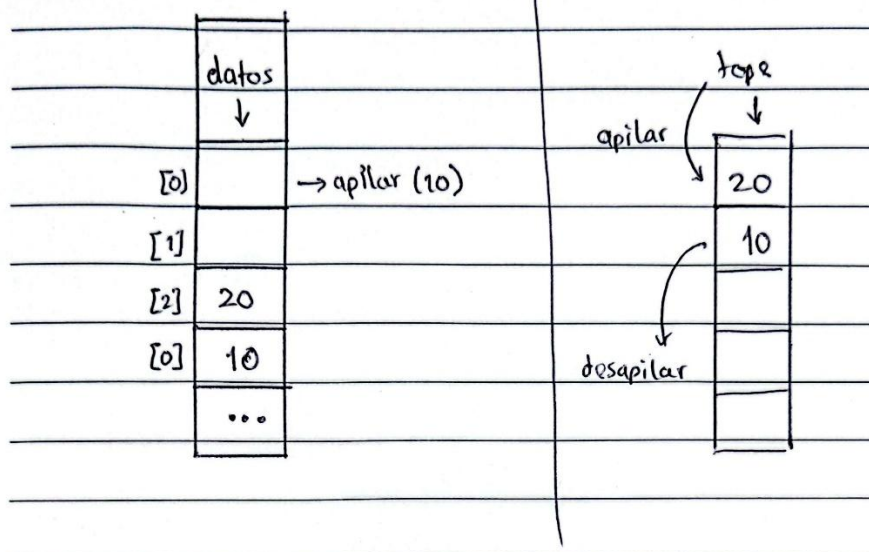 datos
↓
[0] → apilar (10)
[1]
[2] 20
[0] 10
...
tope
↓
apilar
20
10
desapilar